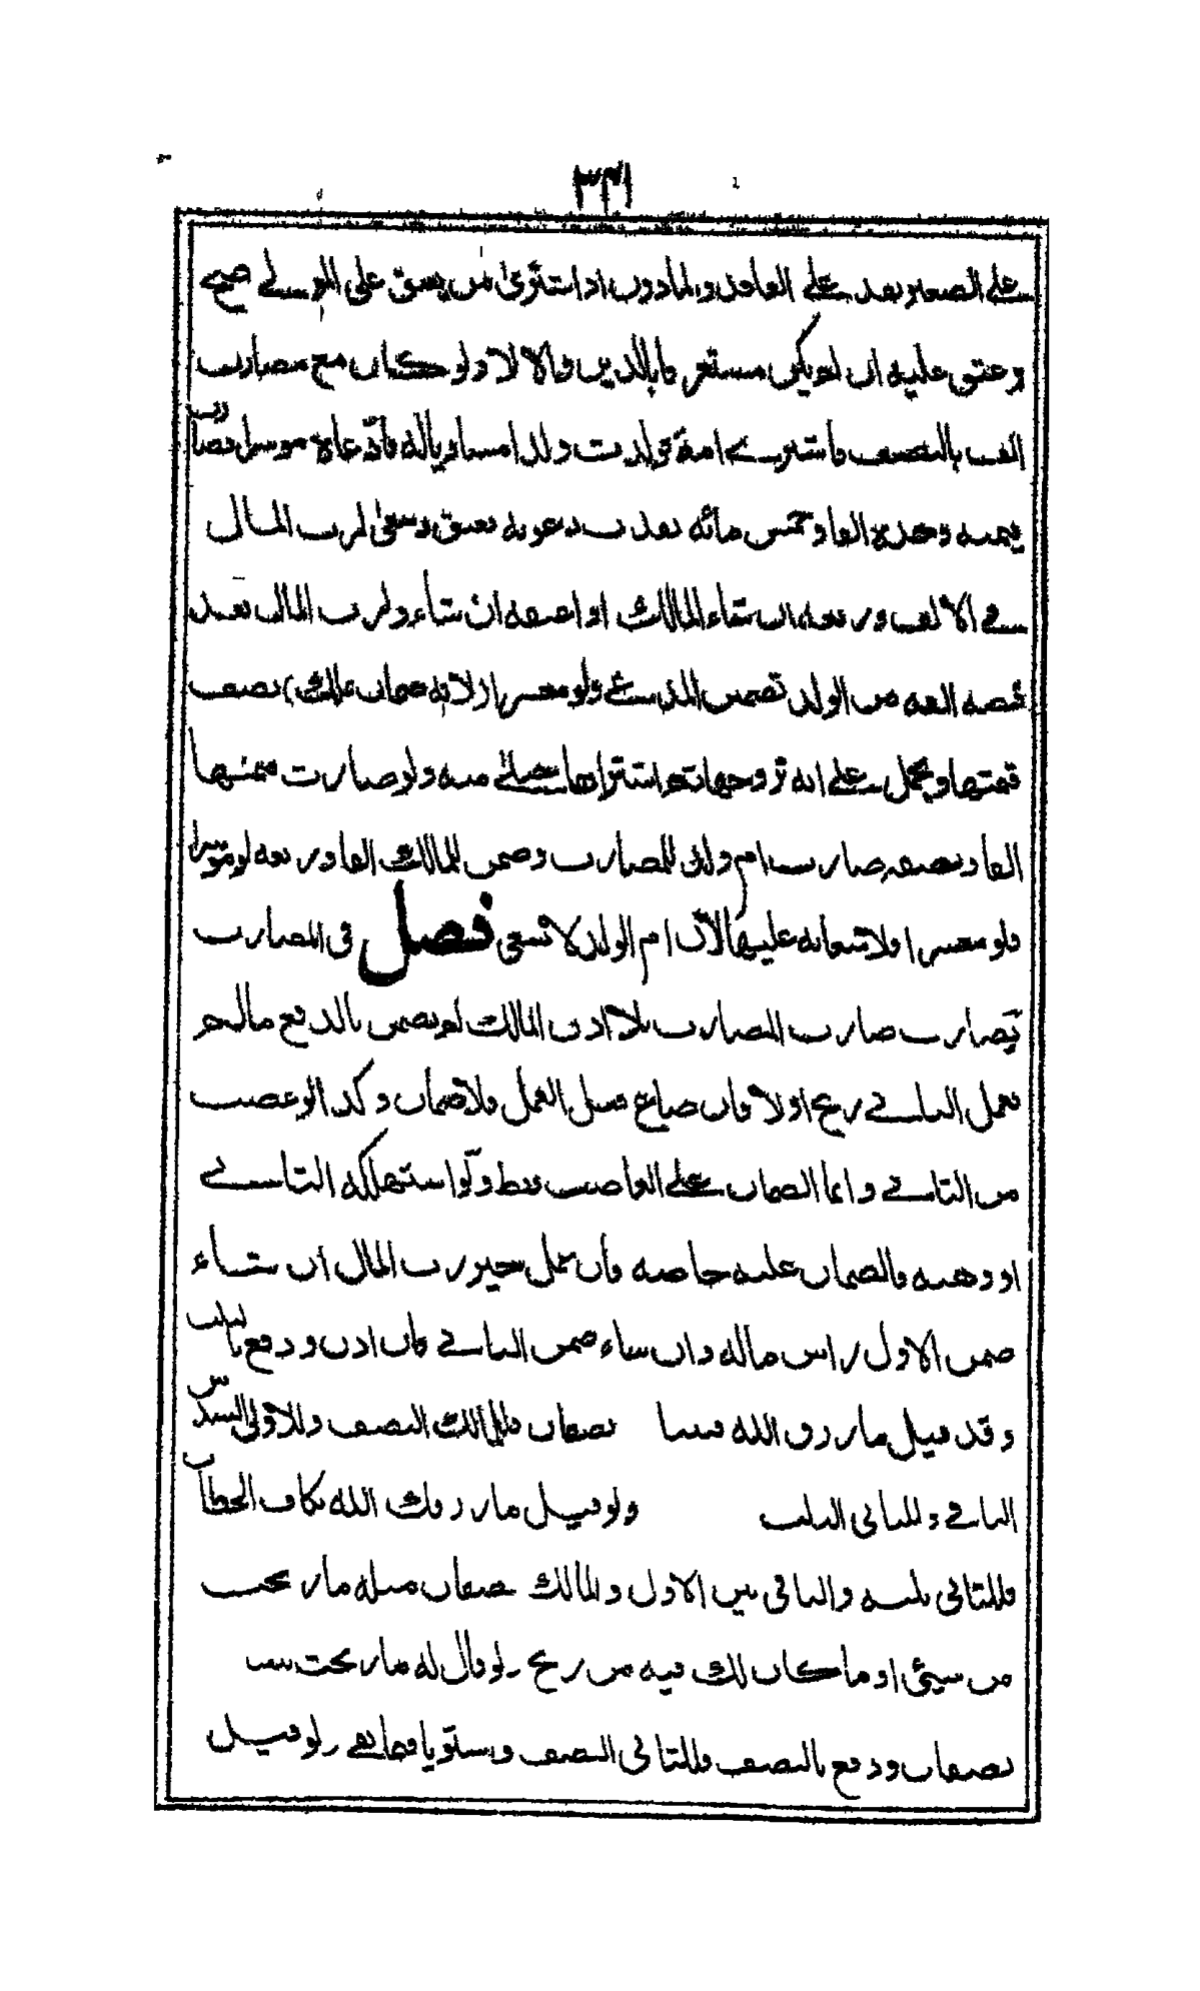 ٣٣١
على الصغير نفذ على العاقد والمأذون اذا اشترى من يعتق على المولى صح
وعتق عليه ان لم يكن مستغرقا بالدين والا لا ولو كان مع مضارب
الف بالنصف فاشترى امة فولدت ولدا مساويا له فادعاه موسرا فصارت
قيمته وحده الفا وخمس مائه نفذت دعوته فعتق وسعى لرب المال
فى الالف وربعه ان شاء المالك او اعتقه ان شاء ولرب المال بعد
قبضه الفه من الولد تضمين المدعى ولو معسرا لانه ضمان تملك نصف
قيمتها ويحمل على انه تزوجها ثم اشتراها حبلى منه ولو صارت قيمتها
الفا ونصفه صارت ام ولد للمضارب وضمن للمالك الفا وربعه لو موسرا
فلو معسرا فلا سعايه عليها لان ام الولد لا تسعى فصل فى المضارب
يضارب ضارب المضارب بلا اذن المالك لم يضمن بالدفع مالم
يعمل الثانى ربح اولا فان ضاع قبل العمل فلا ضمان وكذا لو غصب
من الثانى وانما الضمان على الغاصب فقط ولو استهلكه الثانى
او وهبه فالضمان عليه خاصه فان عمل خير رب المال ان شاء
ضمن الاول راس ماله وان شاء ضمن الثانى فان اذن ودفع بالثلث
وقد قيل ما رزق الله بيننا نصفان فللمالك النصف وللاول السدس
الباقى وللثانى الثلث ولو قيل ما رزقك الله بكاف الخطاب
فللثانى ثلثه والباقى بين الاول والمالك نصفان مثله ما ربحت
من شيئ او ما كان لك فيه من ربح ولو قال له ما ربحت بيننا
نصفان ودفع بالنصف فللثانى النصف واستويا فيما بقى ولو قيل